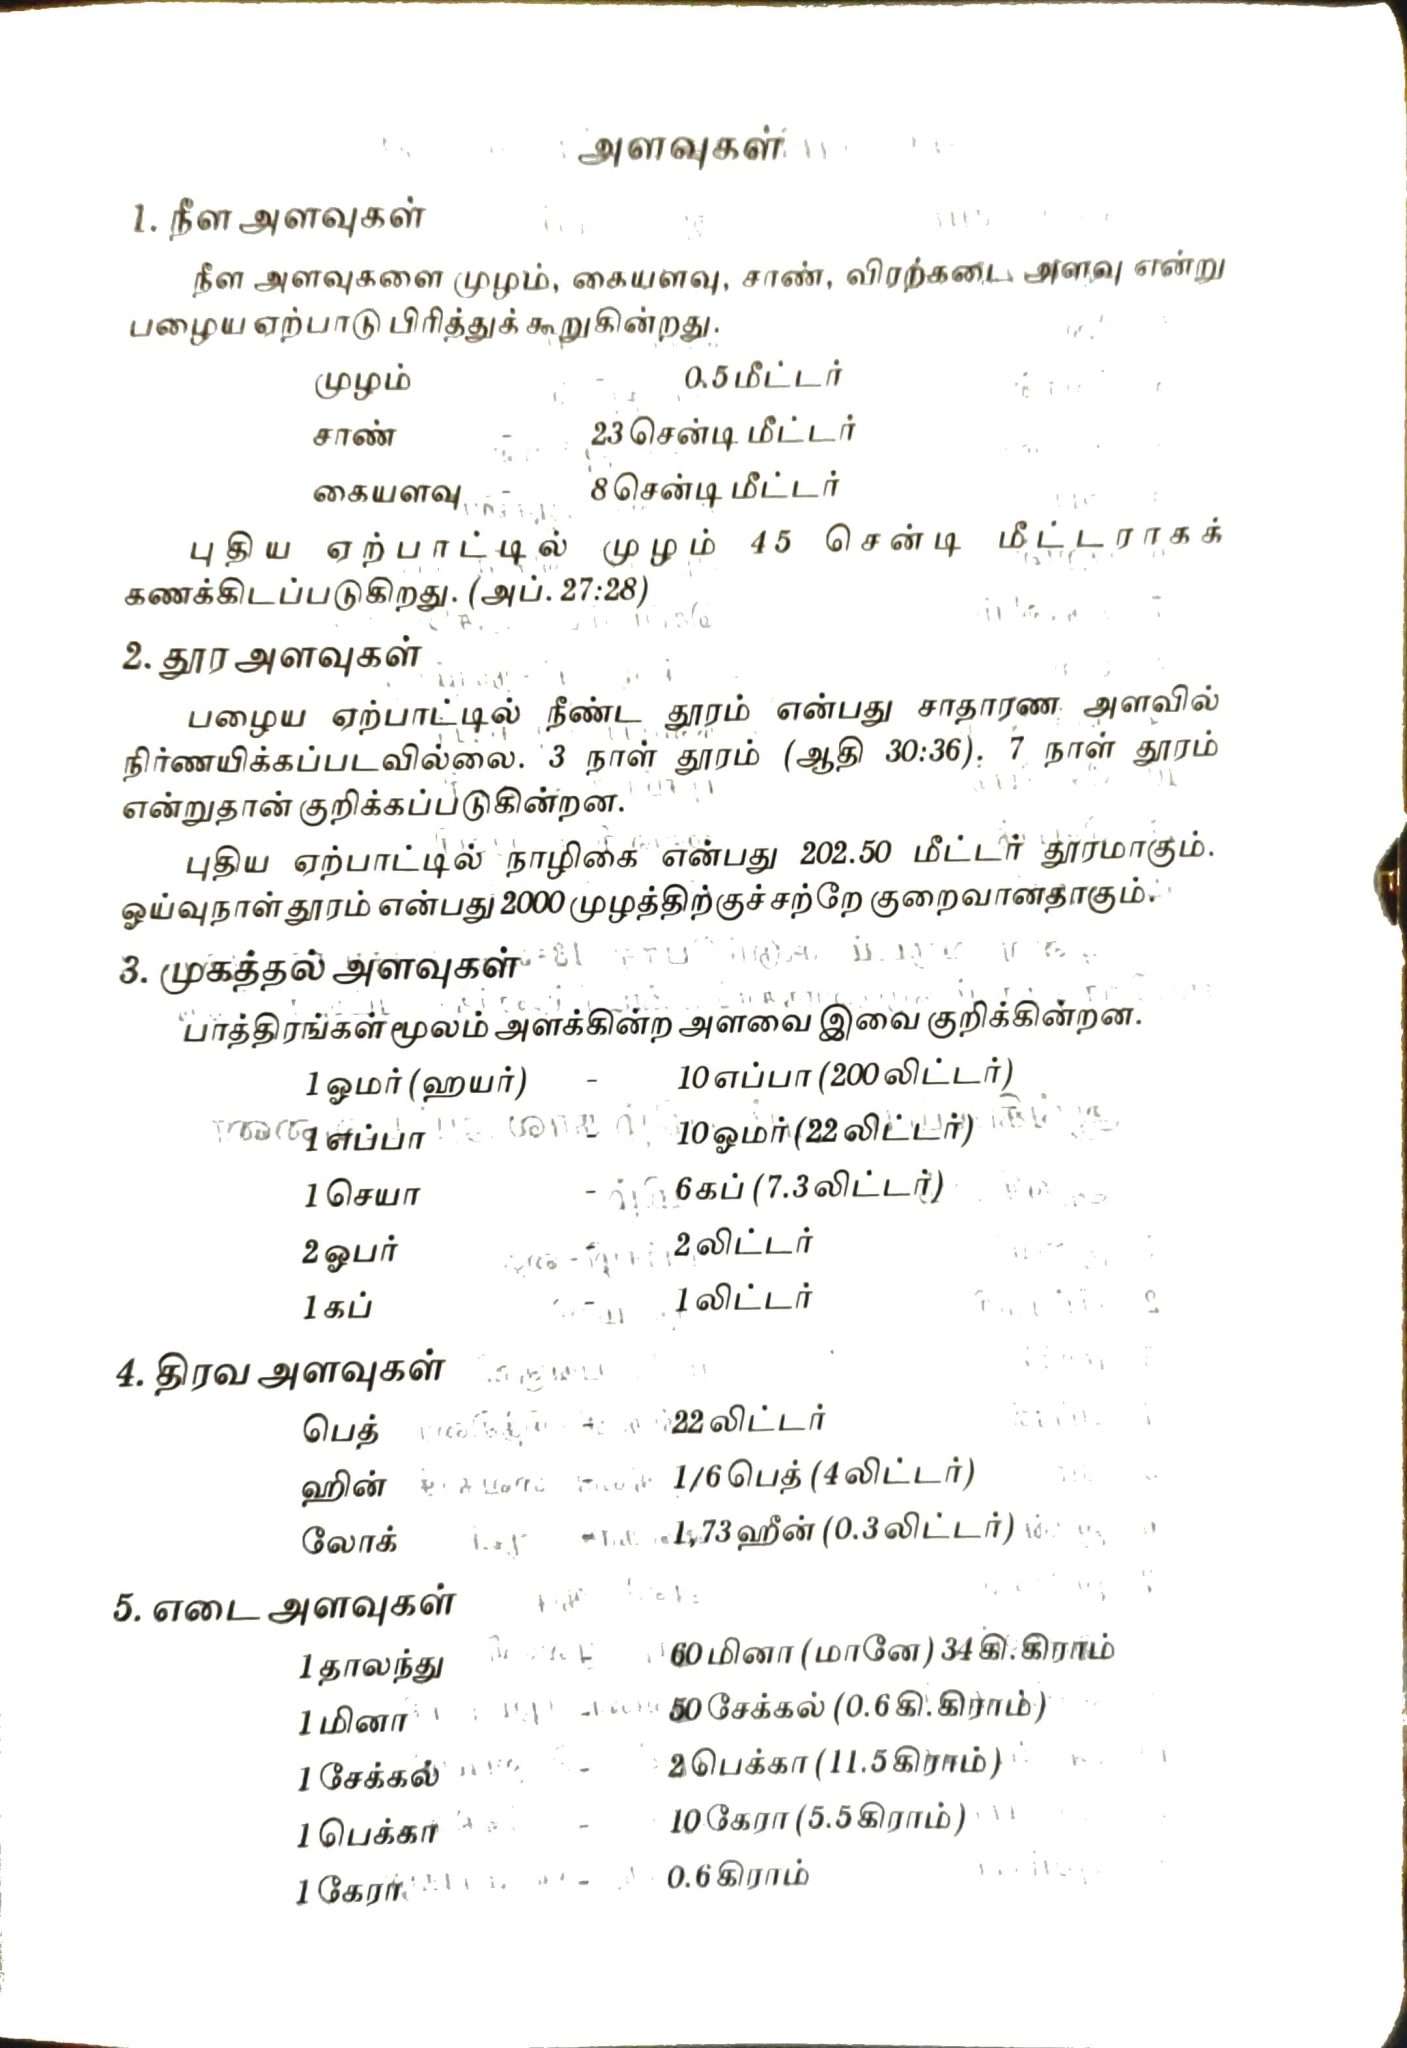 அளவுகள்
1. நீள அளவுகள்
நீள அளவுகளை முழம், கையளவு, சாண், விரற்கடை அளவு என்று
பழைய ஏற்பாடு பிரித்துக் கூறுகின்றது.
முழம் - 0.5 மீட்டர்
சாண் - 23 சென்டி மீட்டர்
கையளவு - 8 சென்டி மீட்டர்
புதிய ஏற்பாட்டில் முழம் 45 சென்டி மீட்டராகக்
கணக்கிடப்படுகிறது. (அப். 27:28)
2. தூர அளவுகள்
பழைய ஏற்பாட்டில் நீண்ட தூரம் என்பது சாதாரண அளவில்
நிர்ணயிக்கப்படவில்லை. 3 நாள் தூரம் (ஆதி 30:36). 7 நாள் தூரம்
என்றுதான் குறிக்கப்படுகின்றன.
புதிய ஏற்பாட்டில் நாழிகை என்பது 202.50 மீட்டர் தூரமாகும்.
ஓய்வுநாள் தூரம் என்பது 2000 முழத்திற்குச் சற்றே குறைவானதாகும்.
3. முகத்தல் அளவுகள்
பாத்திரங்கள் மூலம் அளக்கின்ற அளவை இவை குறிக்கின்றன.
1 ஓமர் (ஹயர்) - 10 எப்பா (200 லிட்டர்)
1 எப்பா - 10 ஓமர் (22 லிட்டர்)
1 செயா - 6 கப் (7.3 லிட்டர்)
2 ஓபர் - 2 லிட்டர்
1 கப் - 1 லிட்டர்
4. திரவ அளவுகள்
பெத் - 22 லிட்டர்
ஹின் - 1/6 பெத் (4 லிட்டர்)
லோக் - 1,73 ஹீன் (0.3 லிட்டர்)
5. எடை அளவுகள்
1 தாலந்து 60 மினா (மானே) 34 கி.கிராம்
1 மினா - 50 சேக்கல் (0.6 கி.கிராம்)
1 சேக்கல் - 2 பெக்கா (11.5 கிராம்)
1 பெக்கா - 10 கேரா (5.5 கிராம்)
1 கேரா - 0.6 கிராம்